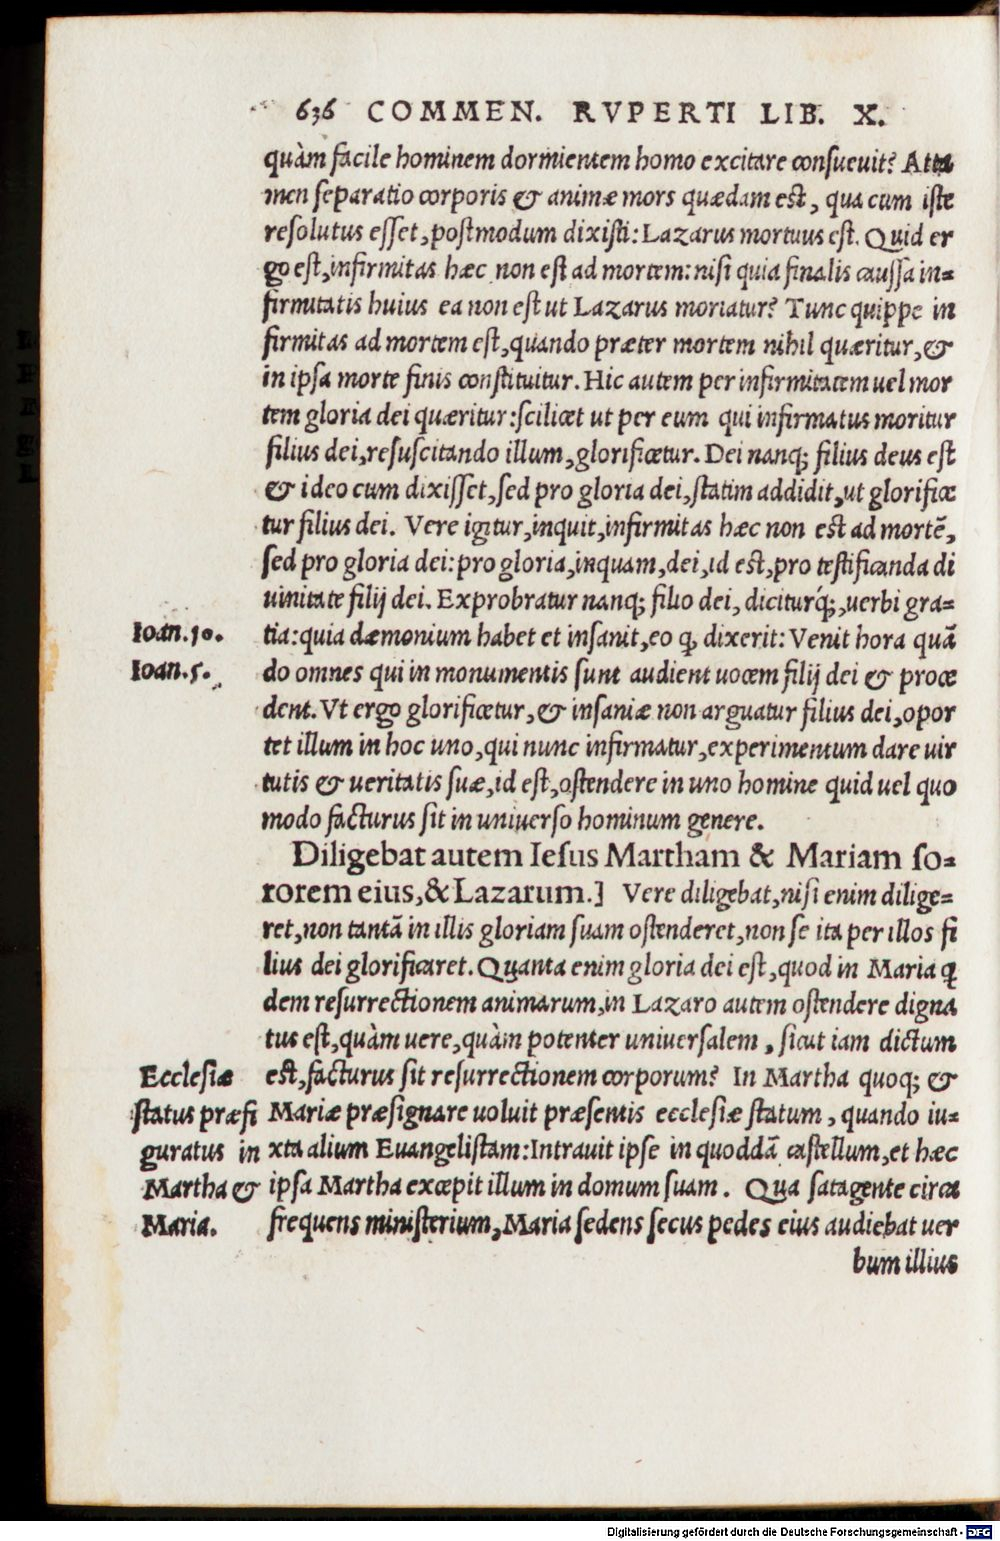 636 COMMEN. RVPERTI LIB. X.
quàm facile hominem dormientem homo excitare consueuit? Atta
men separatio corporis & animæ mors quædam est, qua cum iste
resolutus esset, postmodum dixisti: Lazarus mortuus est. Quid er
go est, infirmitas hæc non est ad mortem: nisi quia finalis caussa in=
firmitatis huius ea non est ut Lazarus moriatur? Tunc quippe in
firmitas ad mortem est, quando præter mortem nihil quæritur, &
in ipsa morte finis constituitur. Hic autem per infirmitatem uel mor
tem gloria dei quæritur: scilicet ut per eum qui infirmatus moritur
filius dei, resuscitando illum, glorificetur. Dei nanq; filius deus est
& ideo cum dixisset, sed pro gloria dei, statim addidit, ut glorifice
tur filius dei. Vere igitur, inquit, infirmitas hæc non est ad mortē,
sed pro gloria dei: pro gloria, inquam, dei, id est, pro testificanda di
uinitate filij dei. Exprobratur nanq; filio dei, diciturq́;, uerbi gra=
Ioan.10. tia: quia dæmonium habet et insanit, eo ꝙ dixerit: Venit hora quā
Ioan.5. do omnes qui in monumentis sunt audient uocem filij dei & proce
dent. Vt ergo glorificetur, & insaniæ non arguatur filius dei, opor
tet illum in hoc uno, qui nunc infirmatur, experimentum dare uir
tutis & ueritatis suæ, id est, ostendere in uno homine quid uel quo
modo facturus sit in uniuerso hominum genere.
Diligebat autem Iesus Martham & Mariam so=
rorem eius, & Lazarum.] Vere diligebat, nisi enim dilige=
ret, non tantā in illis gloriam suam ostenderet, non se ita per illos fi
lius dei glorificaret. Quanta enim gloria dei est, quod in Maria q̃
dem resurrectionem animarum, in Lazaro autem ostendere digna
tus est, quàm uere, quàm potenter uniuersalem, sicut iam dictum
Ecclesiæ est, facturus sit resurrectionem corporum? In Martha quoq; &
status præfi Mariæ præsignare uoluit præsentis ecclesiæ statum, quando iu=
guratus in xta alium Euangelistam: Intrauit ipse in quoddā castellum, et hæc
Martha & ipsa Martha excepit illum in domum suam. Qua satagente circa
Maria. frequens ministerium, Maria sedens secus pedes eius audiebat uer
bum illius
Digitalisierung gefördert durch die Deutsche Forschungsgemeinschaft - DFG